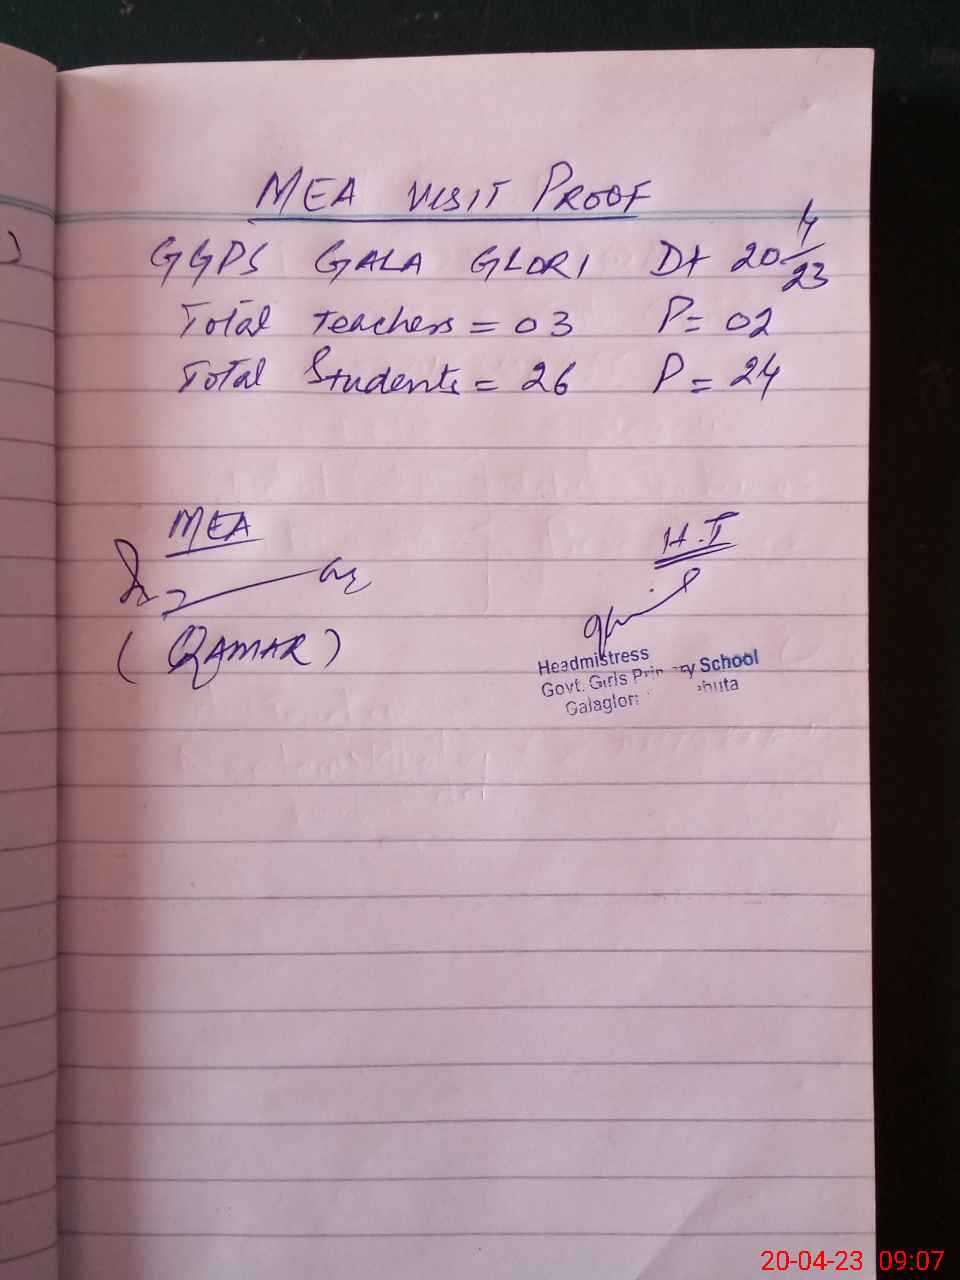 MEA VISIT PROOF
GGPS GALA GLORI Dt 20 4/23
Total Teachers = 03 P = 02
Total Students = 26 P = 24
MEA
H.T
(QAMAR)
Headmistress
Govt. Girls School
20-04-23 09:07